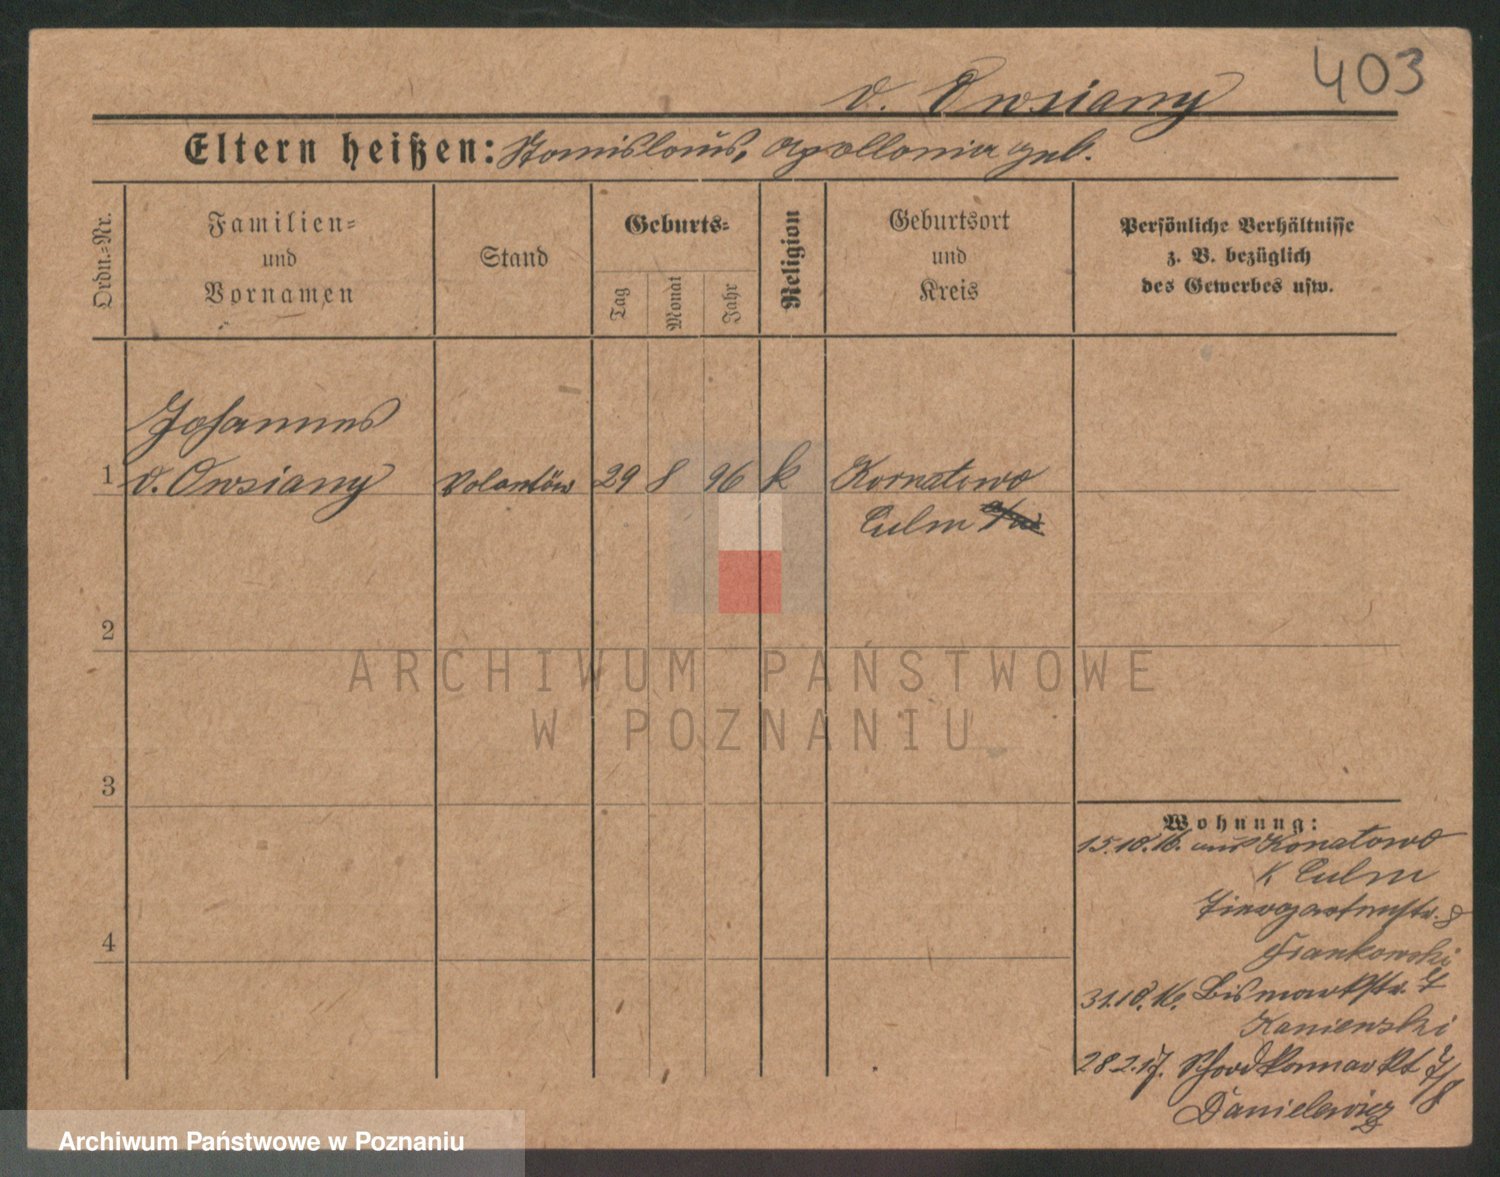 403
v. Owsiany
Eltern heißen: Stanislaus, Apollonia geb.
Ordn.-Nr.
Familien-
und
Vornamen
Stand
Geburts-
Tag
Monat
Jahr
Religion
Geburtsort
und
Kreis
Persönliche Verhältnisse
z. B. bezüglich
des Gewerbes usw.
Johannes
1 v. Owsiany Volontär 29 8 96 k Kornatowo
Culm
2
3
4
Wohnung:
15.10.16. aus Konatowo
K Culm
Tiergartenstr. 8
Frankowski
31.10.16. Bismarkstr. 7
Kaniewski
28.2.17. 7/8
Danielewicz
ARCHIWUM PAŃSTWOWE
W POZNANIU
Archiwum Państwowe w Poznaniu